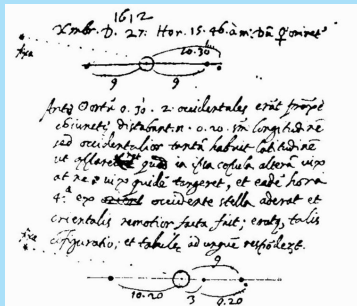 1612
Xmbr. D. 27. Hor. 15. 46. à m: D.
fixa
10.30
9 9
0. 30. 2. occidentales erāt
distabant. n. 0. 20. longitudinē
sed occidentalior tantā habuit latitudinē
ut in ipsa altera vix
at ne vix quidē tangeret, et eadē hora
4.ª ex occidente stella aderat et
orientalis remotior facta fuit; eratq. talis
cōfiguratio; et tabulę ad unguē respōdent.
fixa
9
10.20 3 0.20